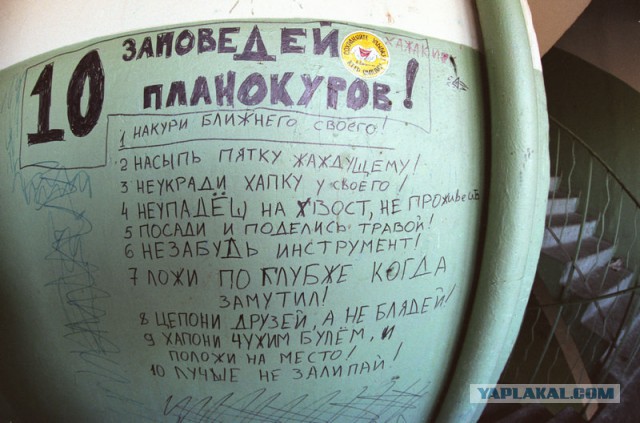 10 ЗАПОВЕДЕЙ
ПЛАНОКУРОВ!
1 НАКУРИ БЛИЖНЕГО СВОЕГО!
2 НАСЫПЬ ПЯТКУ ЖАЖДУЩЕМУ!
3 НЕУКРАДИ ХАПКУ У СВОЕГО!
4 НЕУПАДЁШ НА ХВОСТ, НЕ ПРОЖИВЕШЬ
5 ПОСАДИ И ПОДЕЛИСЬ ТРАВОЙ!
6 НЕЗАБУДЬ ИНСТРУМЕНТ!
7 ЛОЖИ ПО ГЛУБЖЕ КОГДА
ЗАМУТИЛ!
8 ЦЕПОНИ ДРУЗЕЙ, А НЕ БЛЯДЕЙ!
9 ХАПОНИ ЧУЖИМ БУЛЁМ, И
ПОЛОЖИ НА МЕСТО!
10 ЛУЧЬШЕ НЕ ЗАЛИПАЙ!
YAPLAKAL.COM